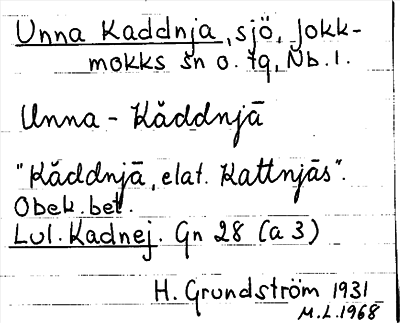 Unna Kaddnja, sjö, Jokk-
mokks sn o. tg, Nb. l.
Unna - Kåddnjā
"Kåddnjā, elat. Kattnjās".
Obek. bet.
Lul. Kadnej. Gn 28 (a 3)
H. Grundström 1931
M.L. 1968